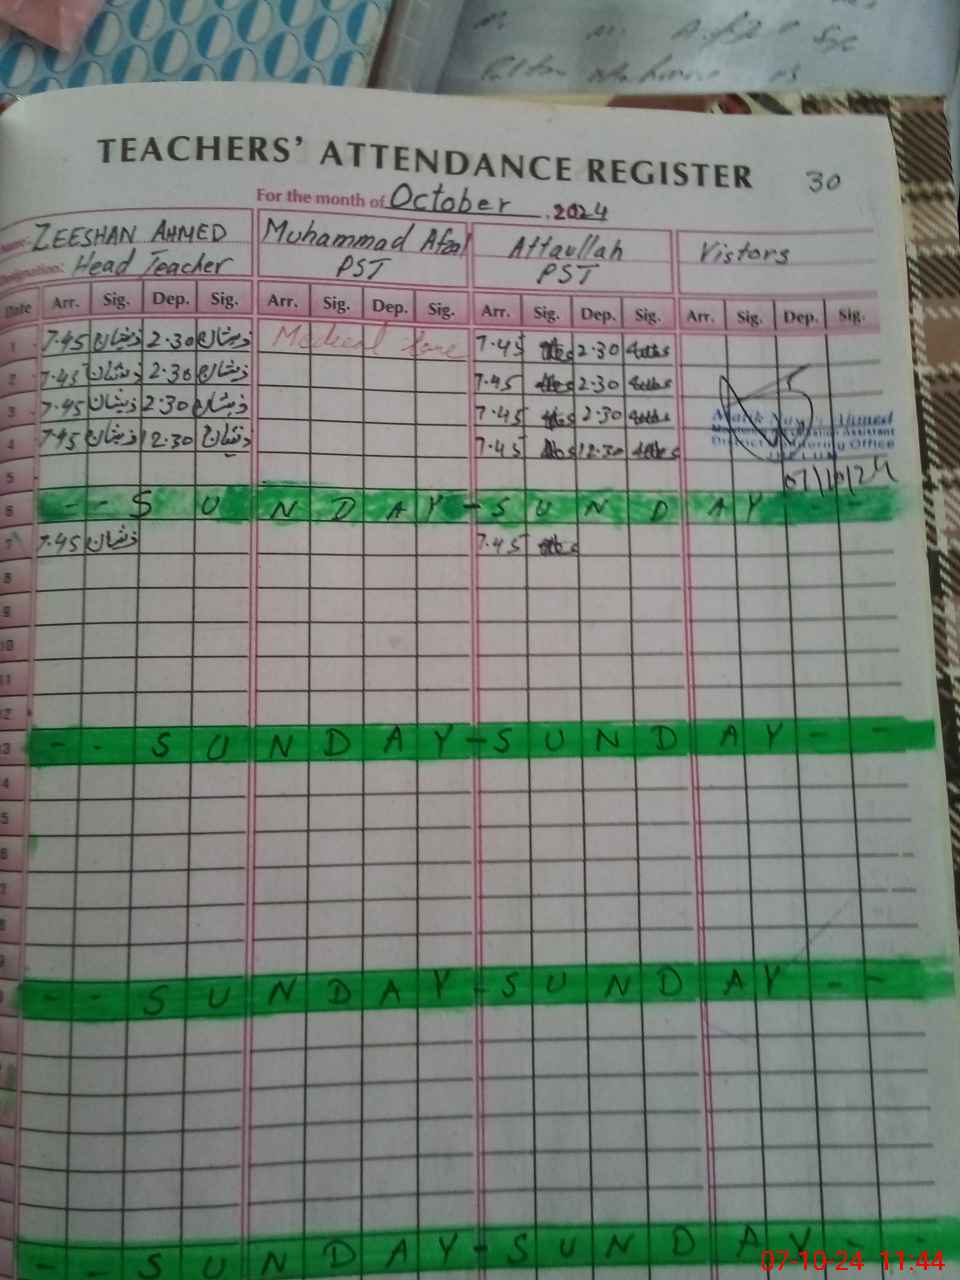 TEACHERS' ATTENDANCE REGISTER 30
For the month of October, 2024
Name: ZEESHAN AHMED Muhammad Afzal Attaullah Vistors
Designation: Head Teacher PST PST
Date Arr. Sig. Dep. Sig. Arr. Sig. Dep. Sig. Arr. Sig. Dep. Sig. Arr. Sig. Dep. Sig.
1 7.45 ذیشان 2.30 ذیشان Medical 7.45 2.30
2 7.45 ذیشان 2.30 ذیشان 7.45 2.30
3 7.45 ذیشان 2.30 ذیشان 7.45 2.30 Ahmed
4 7.45 ذیشان 12.30 ذیشان 7.45 12.30 Assistant
District Monitoring Office
5 07/10/24
6 - - S U N D A Y - S U N D A Y - -
7 7.45 ذیشان 7.45
8
9
10
11
12
13 - - S U N D A Y - S U N D A Y - -
4
5
6
7
8
9
- - S U N D A Y - S U N D A Y - -
- - S U N D A Y - S U N D A Y - -
07-10-24 11:44